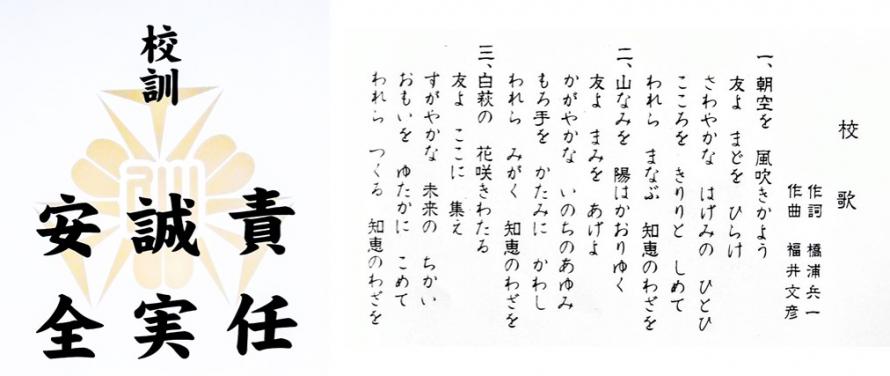 校訓
責任
誠実
安全
校歌
作詞 橋浦兵一
作曲 福井文彦
一、朝空を 風吹きかよう
友よ まどを ひらけ
さわやかな はげみの ひとひ
こころを きりりと しめて
われら まなぶ 知恵のわざを
二、山なみを 陽はかおりゆく
友よ まみを あげよ
かがやかな いのちのあゆみ
もろ手を かたみに かわし
われら みがく 知恵のわざを
三、白萩の 花咲きわたる
友よ ここに 集え
すがやかな 未来の ちかい
おもいを ゆたかに こめて
われら つくる 知恵のわざを